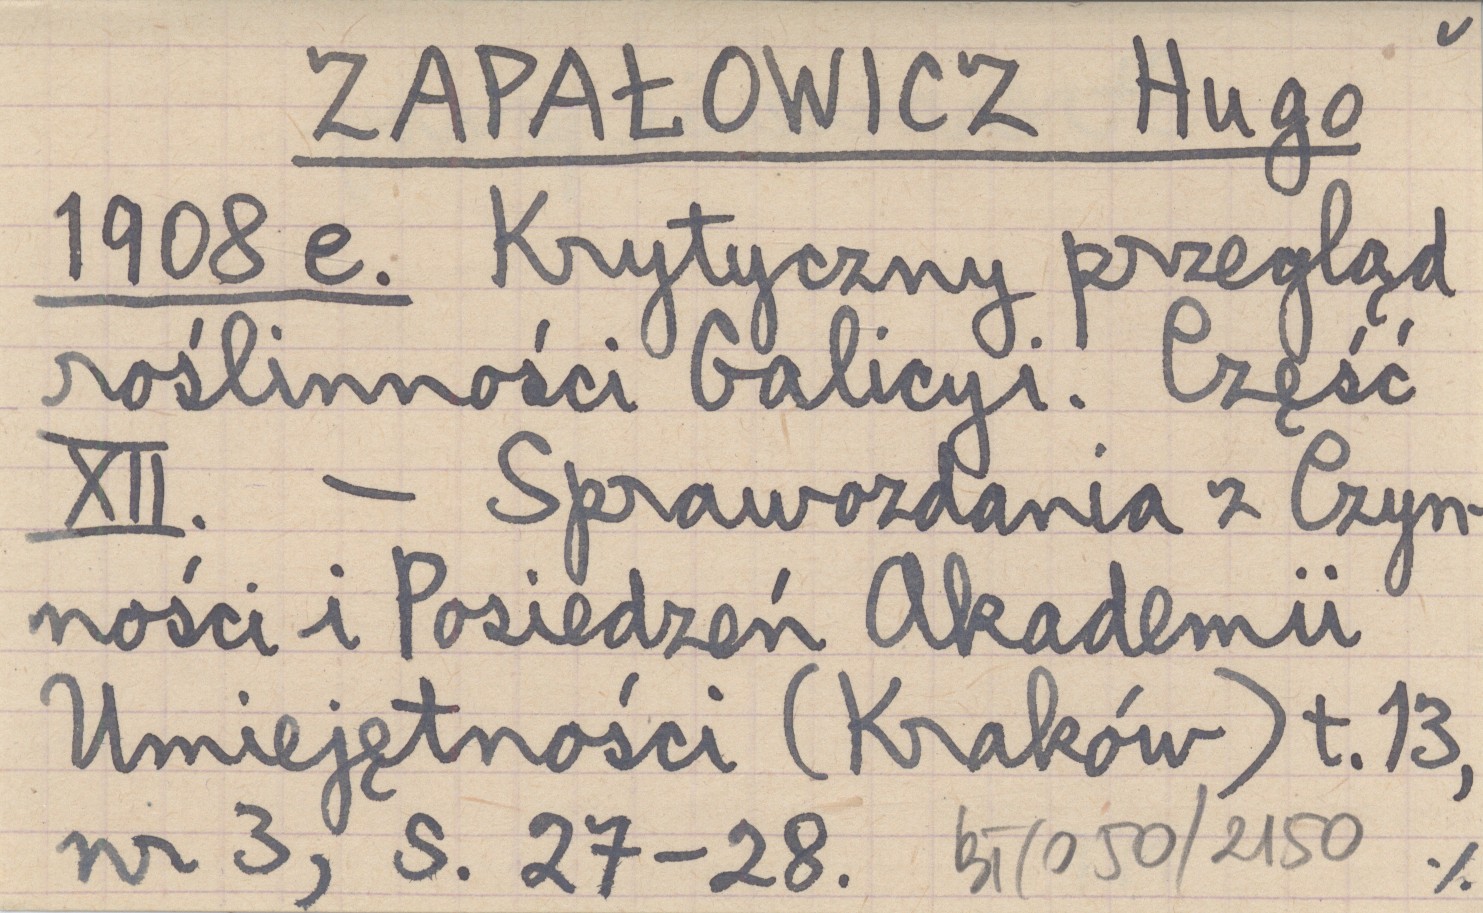 ZAPAŁOWICZ Hugo
1908 e. Krytyczny przegląd
roślinności Galicyi. Część
XII. — Sprawozdania z Czyn-
ności i Posiedzeń Akademii
Umiejętności (Kraków) t. 13,
nr 3, s. 27-28. 050/2150 ./.